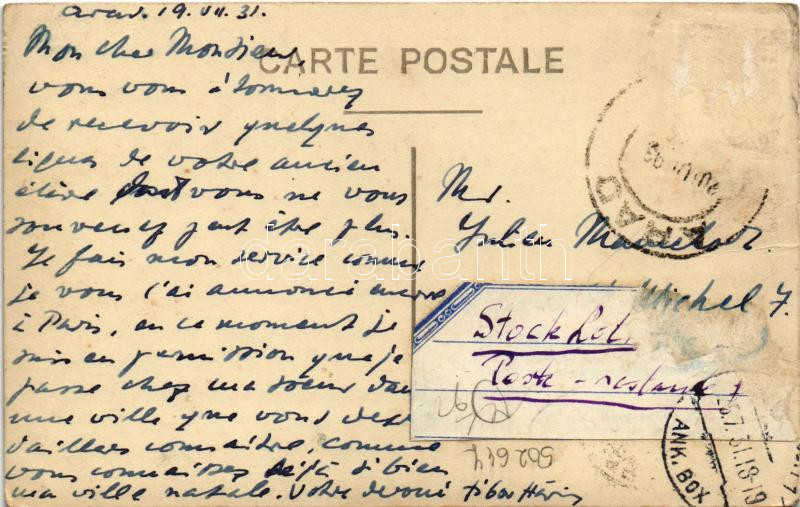 Arad. 19. VII. 31.
Mon cher Monsieur,
CARTE POSTALE
vous vous étonnerez
de recevoir quelques
lignes de votre ancien
élève dont vous ne vous
souvenez peut être plus.
Je fais mon service comme
je vous l'ai annoncé encore
à Paris, en ce moment je
suis en permission que je
passe chez ma soeur dans
une ville que vous devez
d'aillers connaître, comme
vous connaissez déjà si bien
ma ville natale. Votre devoué Tibor
Mr.
Julien
Michel 7.
Stockholm
Poste-restante
ARAD
562644
25.7.31.18-19
ANK. BOX
darabanth